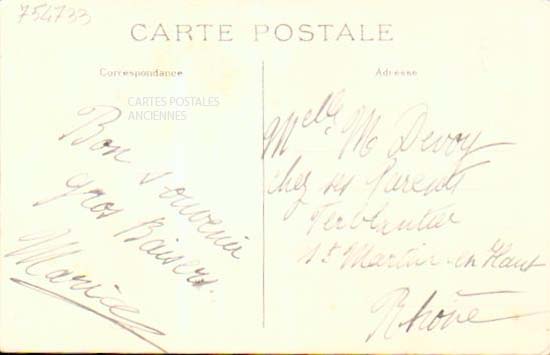 754733
CARTE POSTALE
Correspondance
Adresse
CARTES POSTALES
ANCIENNES
Bon souvenir
gros Baisers.
Melle M Devoy
chez ses Parents
St Martin en Haut
Rhône